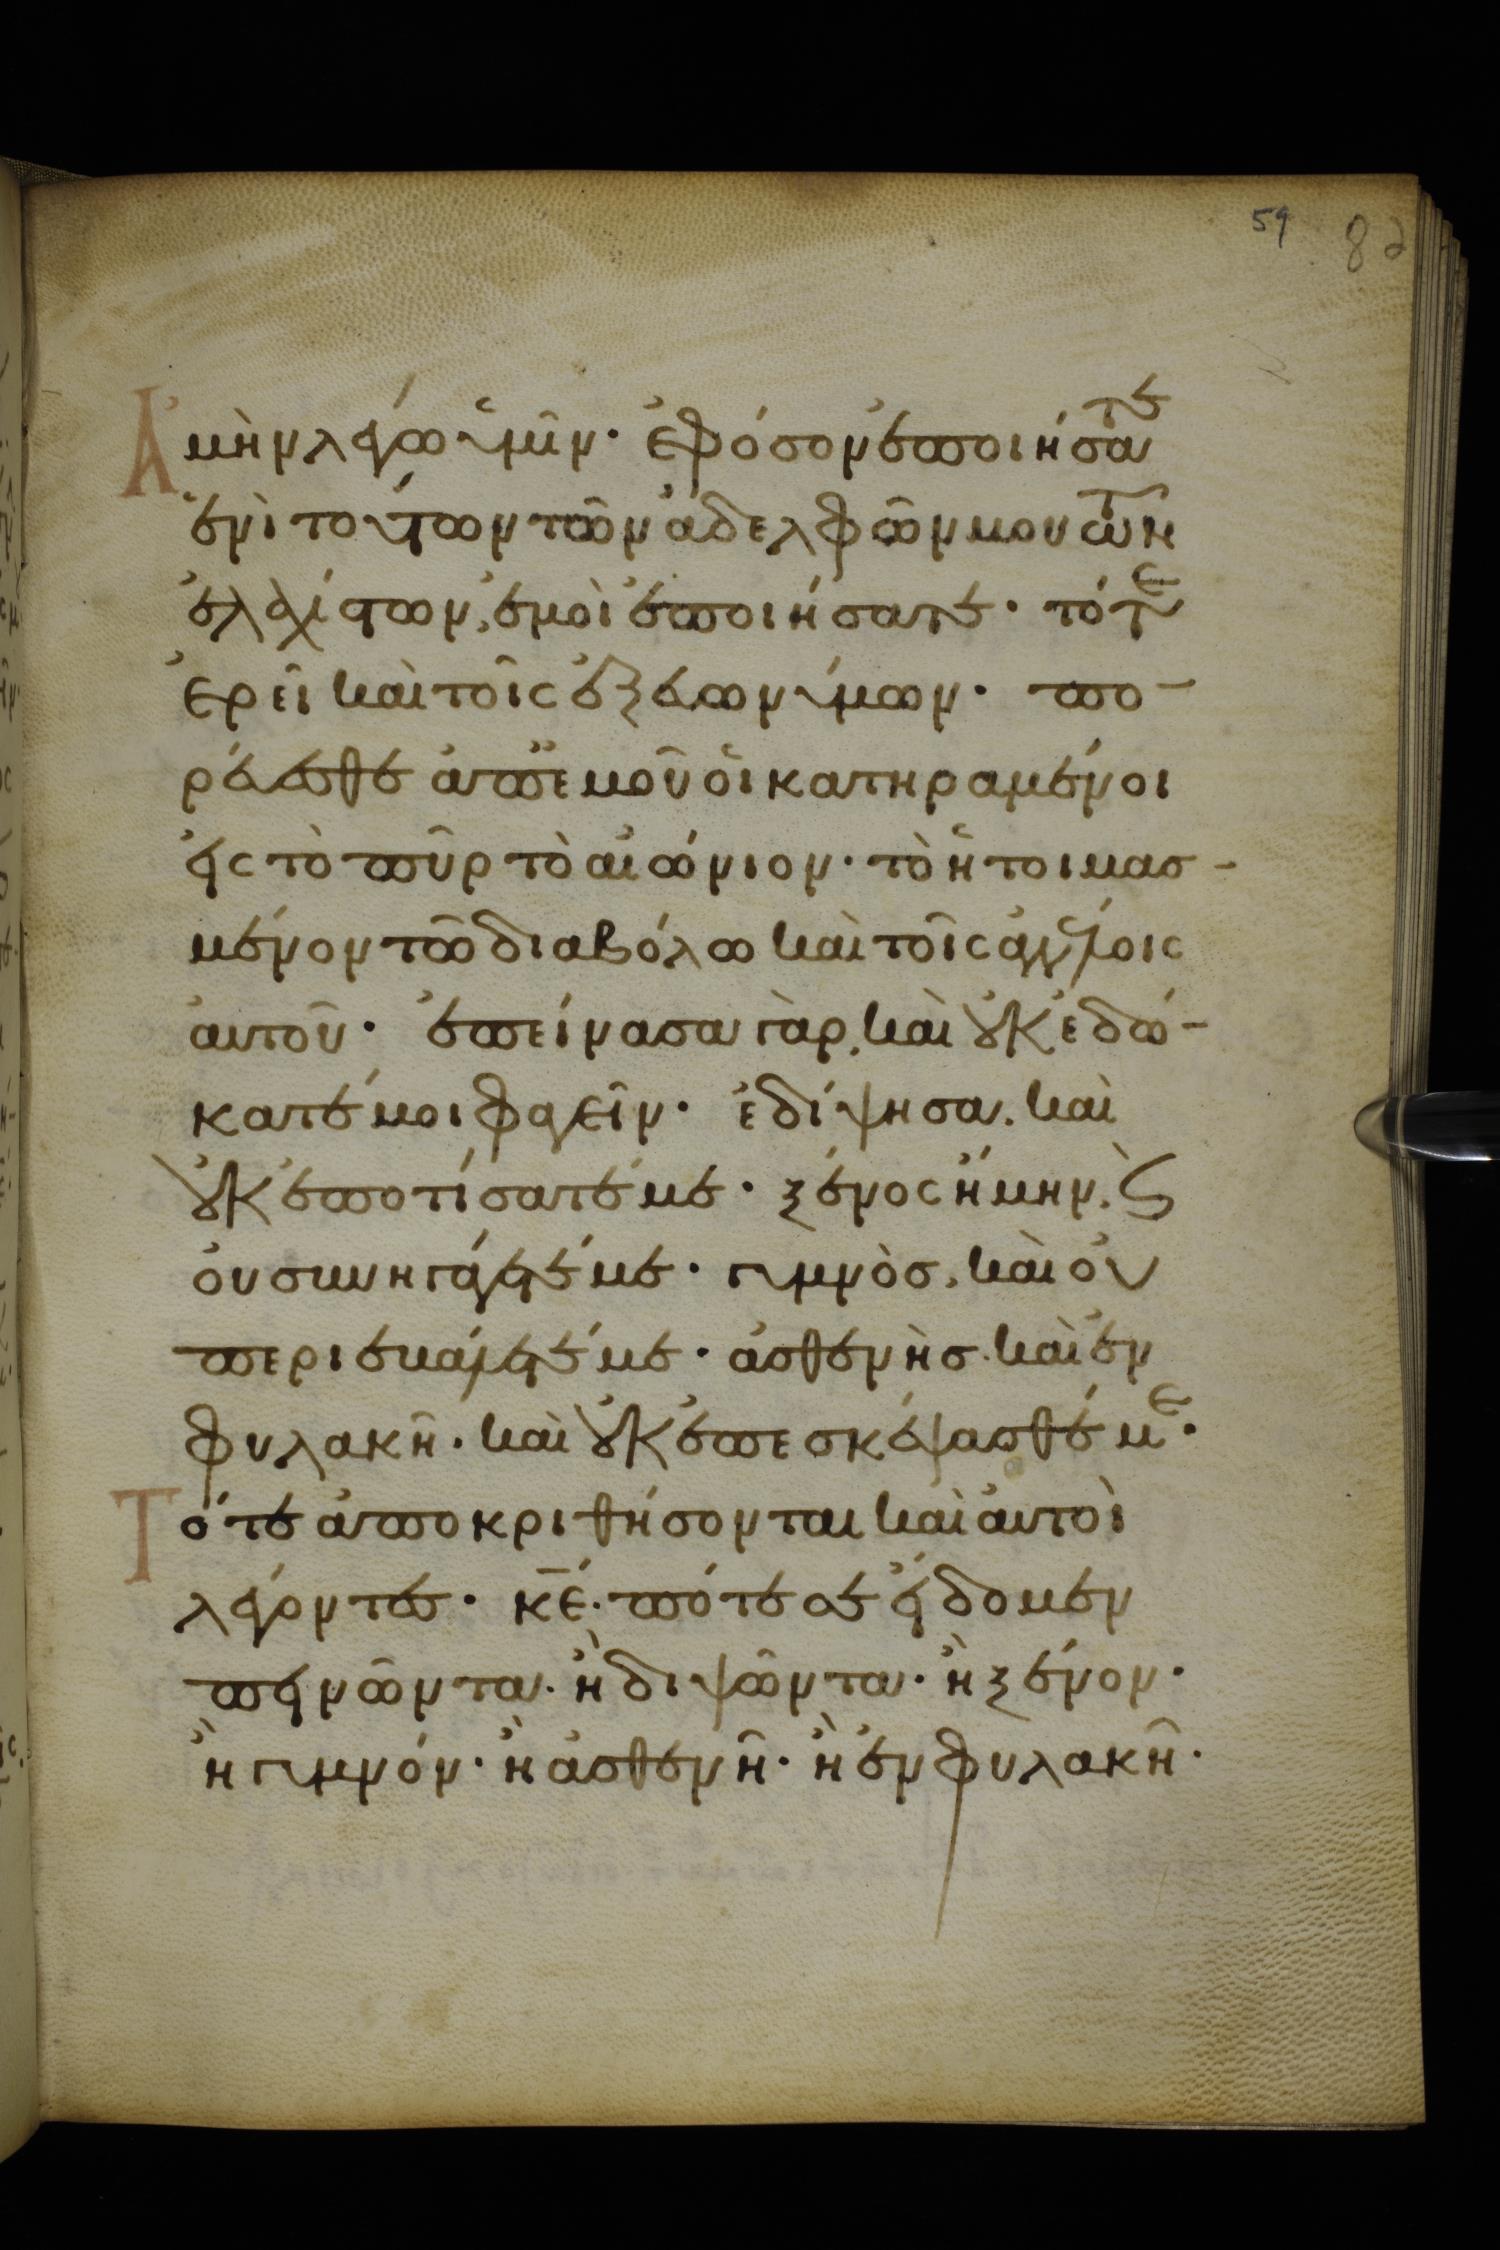 59 82
Ἀμὴν λέγω ὑμῖν· ἐφόσον ἐποιήσατε
ἑνὶ τούτων τῶν ἀδελφῶν μου τῶν
ἐλαχίστων, ἐμοὶ ἐποιήσατε· τότε
ἐρεῖ καὶ τοῖς ἐξ εὐωνύμων· πο-
ρεύεσθε ἀπ ἐμοῦ οἱ κατηραμένοι
εἰς τὸ πῦρ τὸ αἰώνιον· τὸ ἡτοιμασ-
μένον τῶ διαβόλω καὶ τοῖς ἀγγέλοις
αὐτοῦ· ἐπείνασα γὰρ, καὶ οὐκ ἐδώ-
κατέ μοι φαγεῖν· ἐδίψησα, καὶ
οὐκ ἐποτίσατέ με· ξένος ἤμην, ϛ
οὐ συνηγάγετέ με· γυμνὸσ, καὶ οὐ
περιεβάλετέ με· ἀσθενὴσ, καὶ ἐν
φυλακῆ· καὶ οὐκ ἐπεσκέψασθέ με·
Τότε ἀποκριθήσονται καὶ αὐτοὶ
λέγοντες· κ̅ε̅· πότε σε εἴδομεν
πεινῶντα· ἢ διψῶντα· ἢ ξένον·
ἢ γυμνόν· ἢ ἀσθενῆ· ἢ ἐν φυλακῆ·